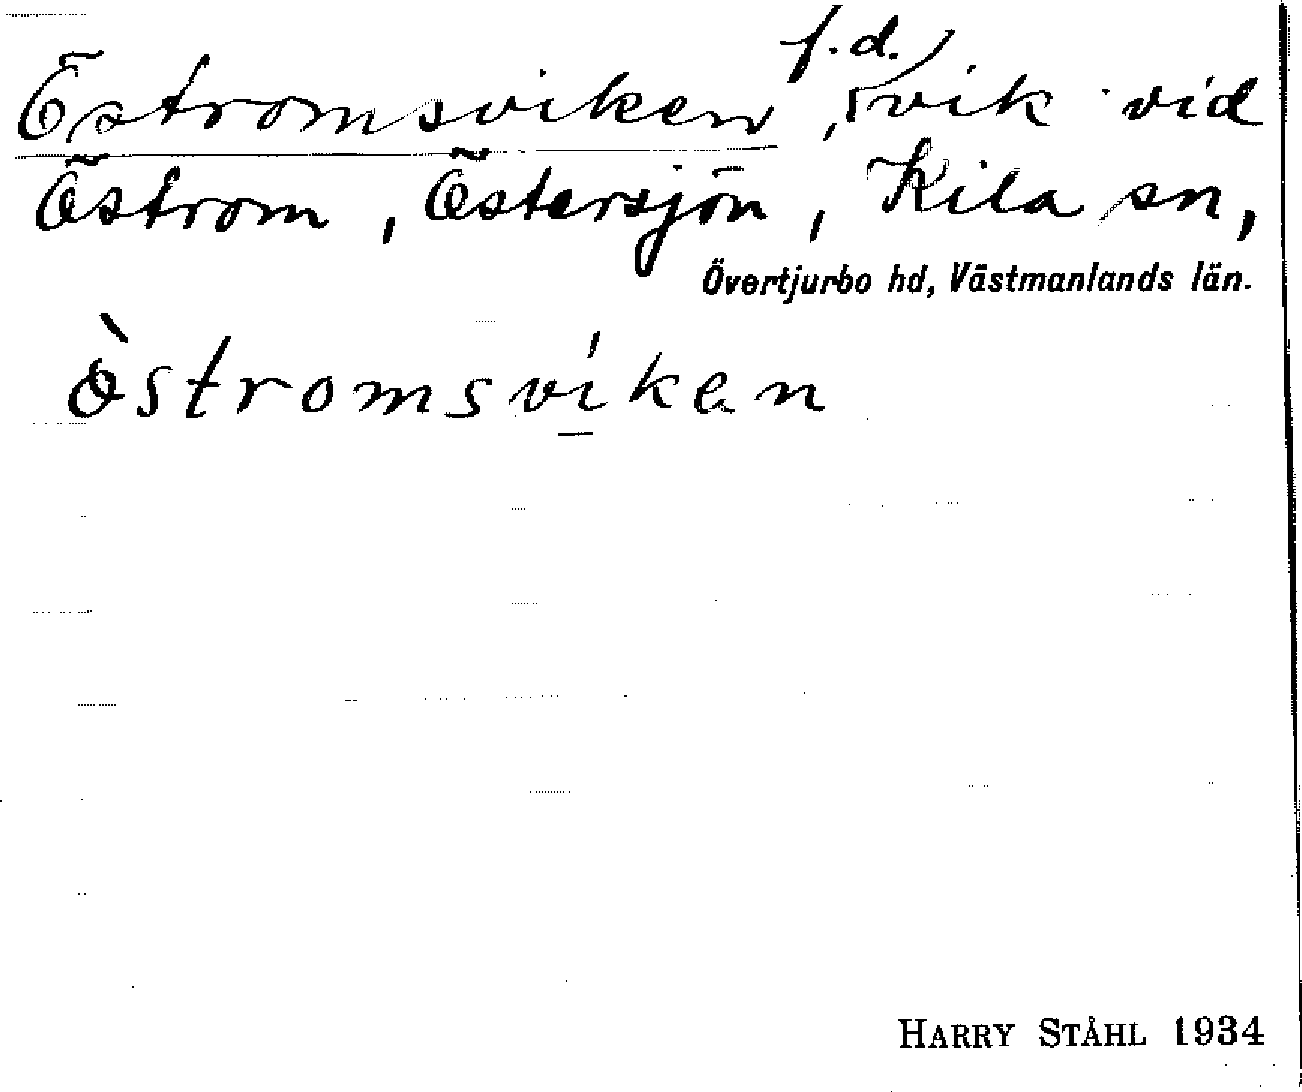 Östromsviken, f.d. vik vid
Östrom, Östersjön, Kila sn,
Övertjurbo hd, Västmanlands län.
òstromsvíken
HARRY STÅHL 1934